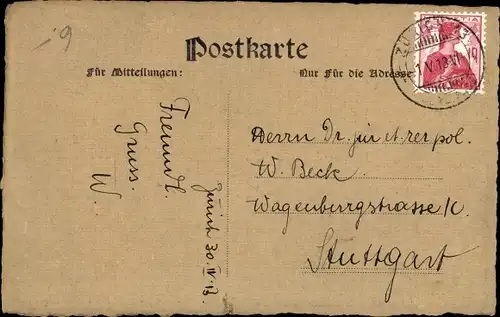 i9
Postkarte
Für Mitteilungen:
Nur Für die Adresse
Freundl.
Gruss.
W.
Zürich 30.IV.13
Herrn Dr. jur et rer pol.
W. Beck
Wagenburgstrasse
Stuttgart
10